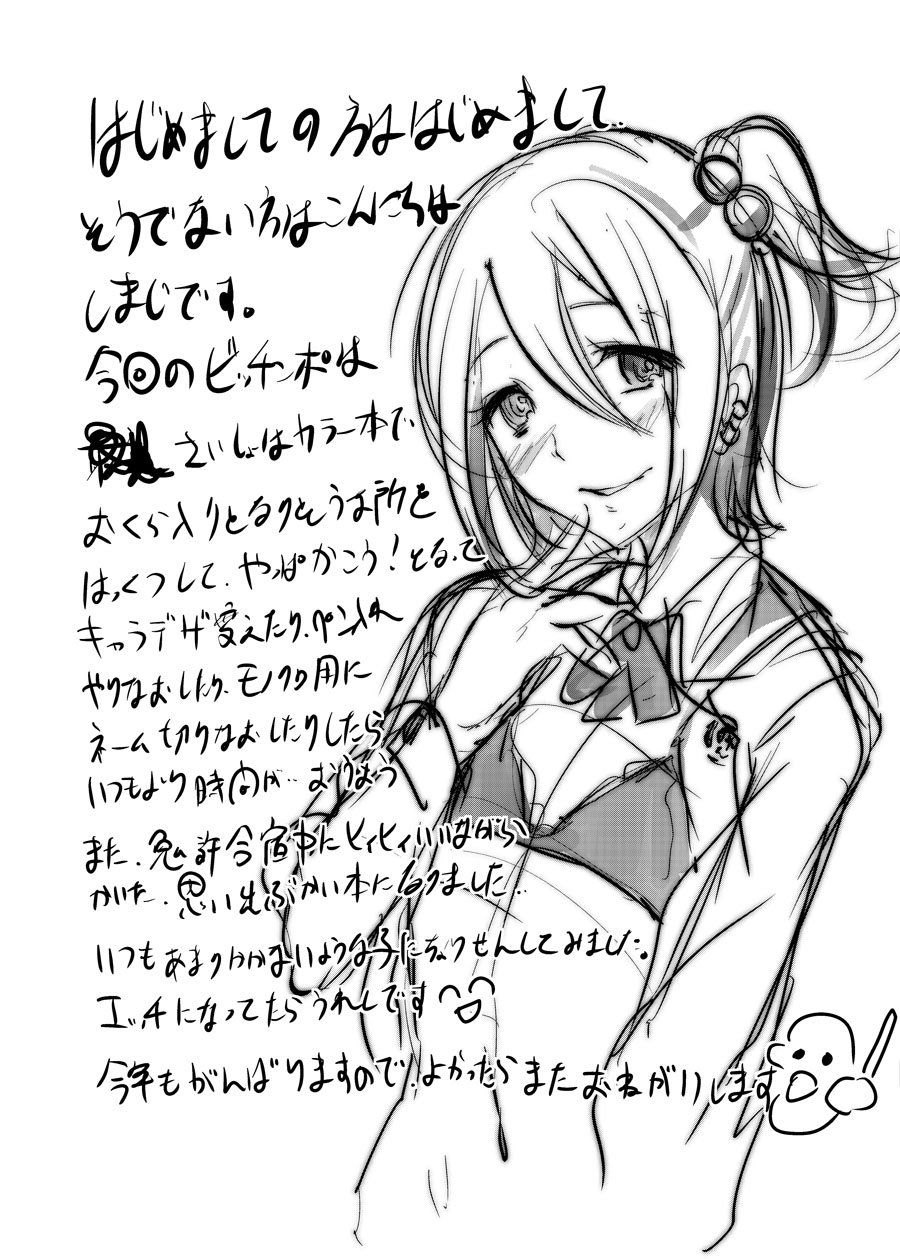 はじめましての方ははじめまして..
そうでない方はこんにちは
しまじです。
今回のビッチポは
さいしょはカラー本で
おくら入りとなりそうな所を
はっくつして、やっぱかこう!となって
キャラデザ変えたり、ペン入れ
やりなおしたり、モノクロ用に
ネーム切りなおしたりしたら
いつもより時間が…
また、免許合宿中にヒィヒィいいながら
かいた、思い出ぶかい本になりました..
いつもあまりかかないような子にちょうせんしてみました。
エッチになってたらうれしいです
今年もがんばりますので、よかったらまたおねがいします